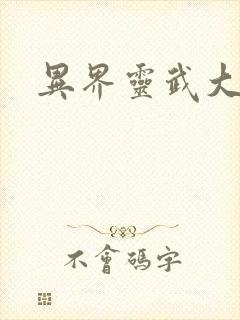 異界靈武大
不會碼字